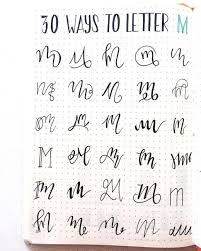 30 WAYS TO LETTER M
m m m m m
m m m m m
m m m m m
M m M m m
m m m m m
m m m m m